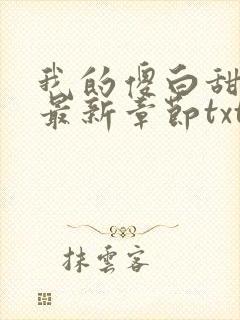 我的傻白甜
最新章節txt
抹雲客